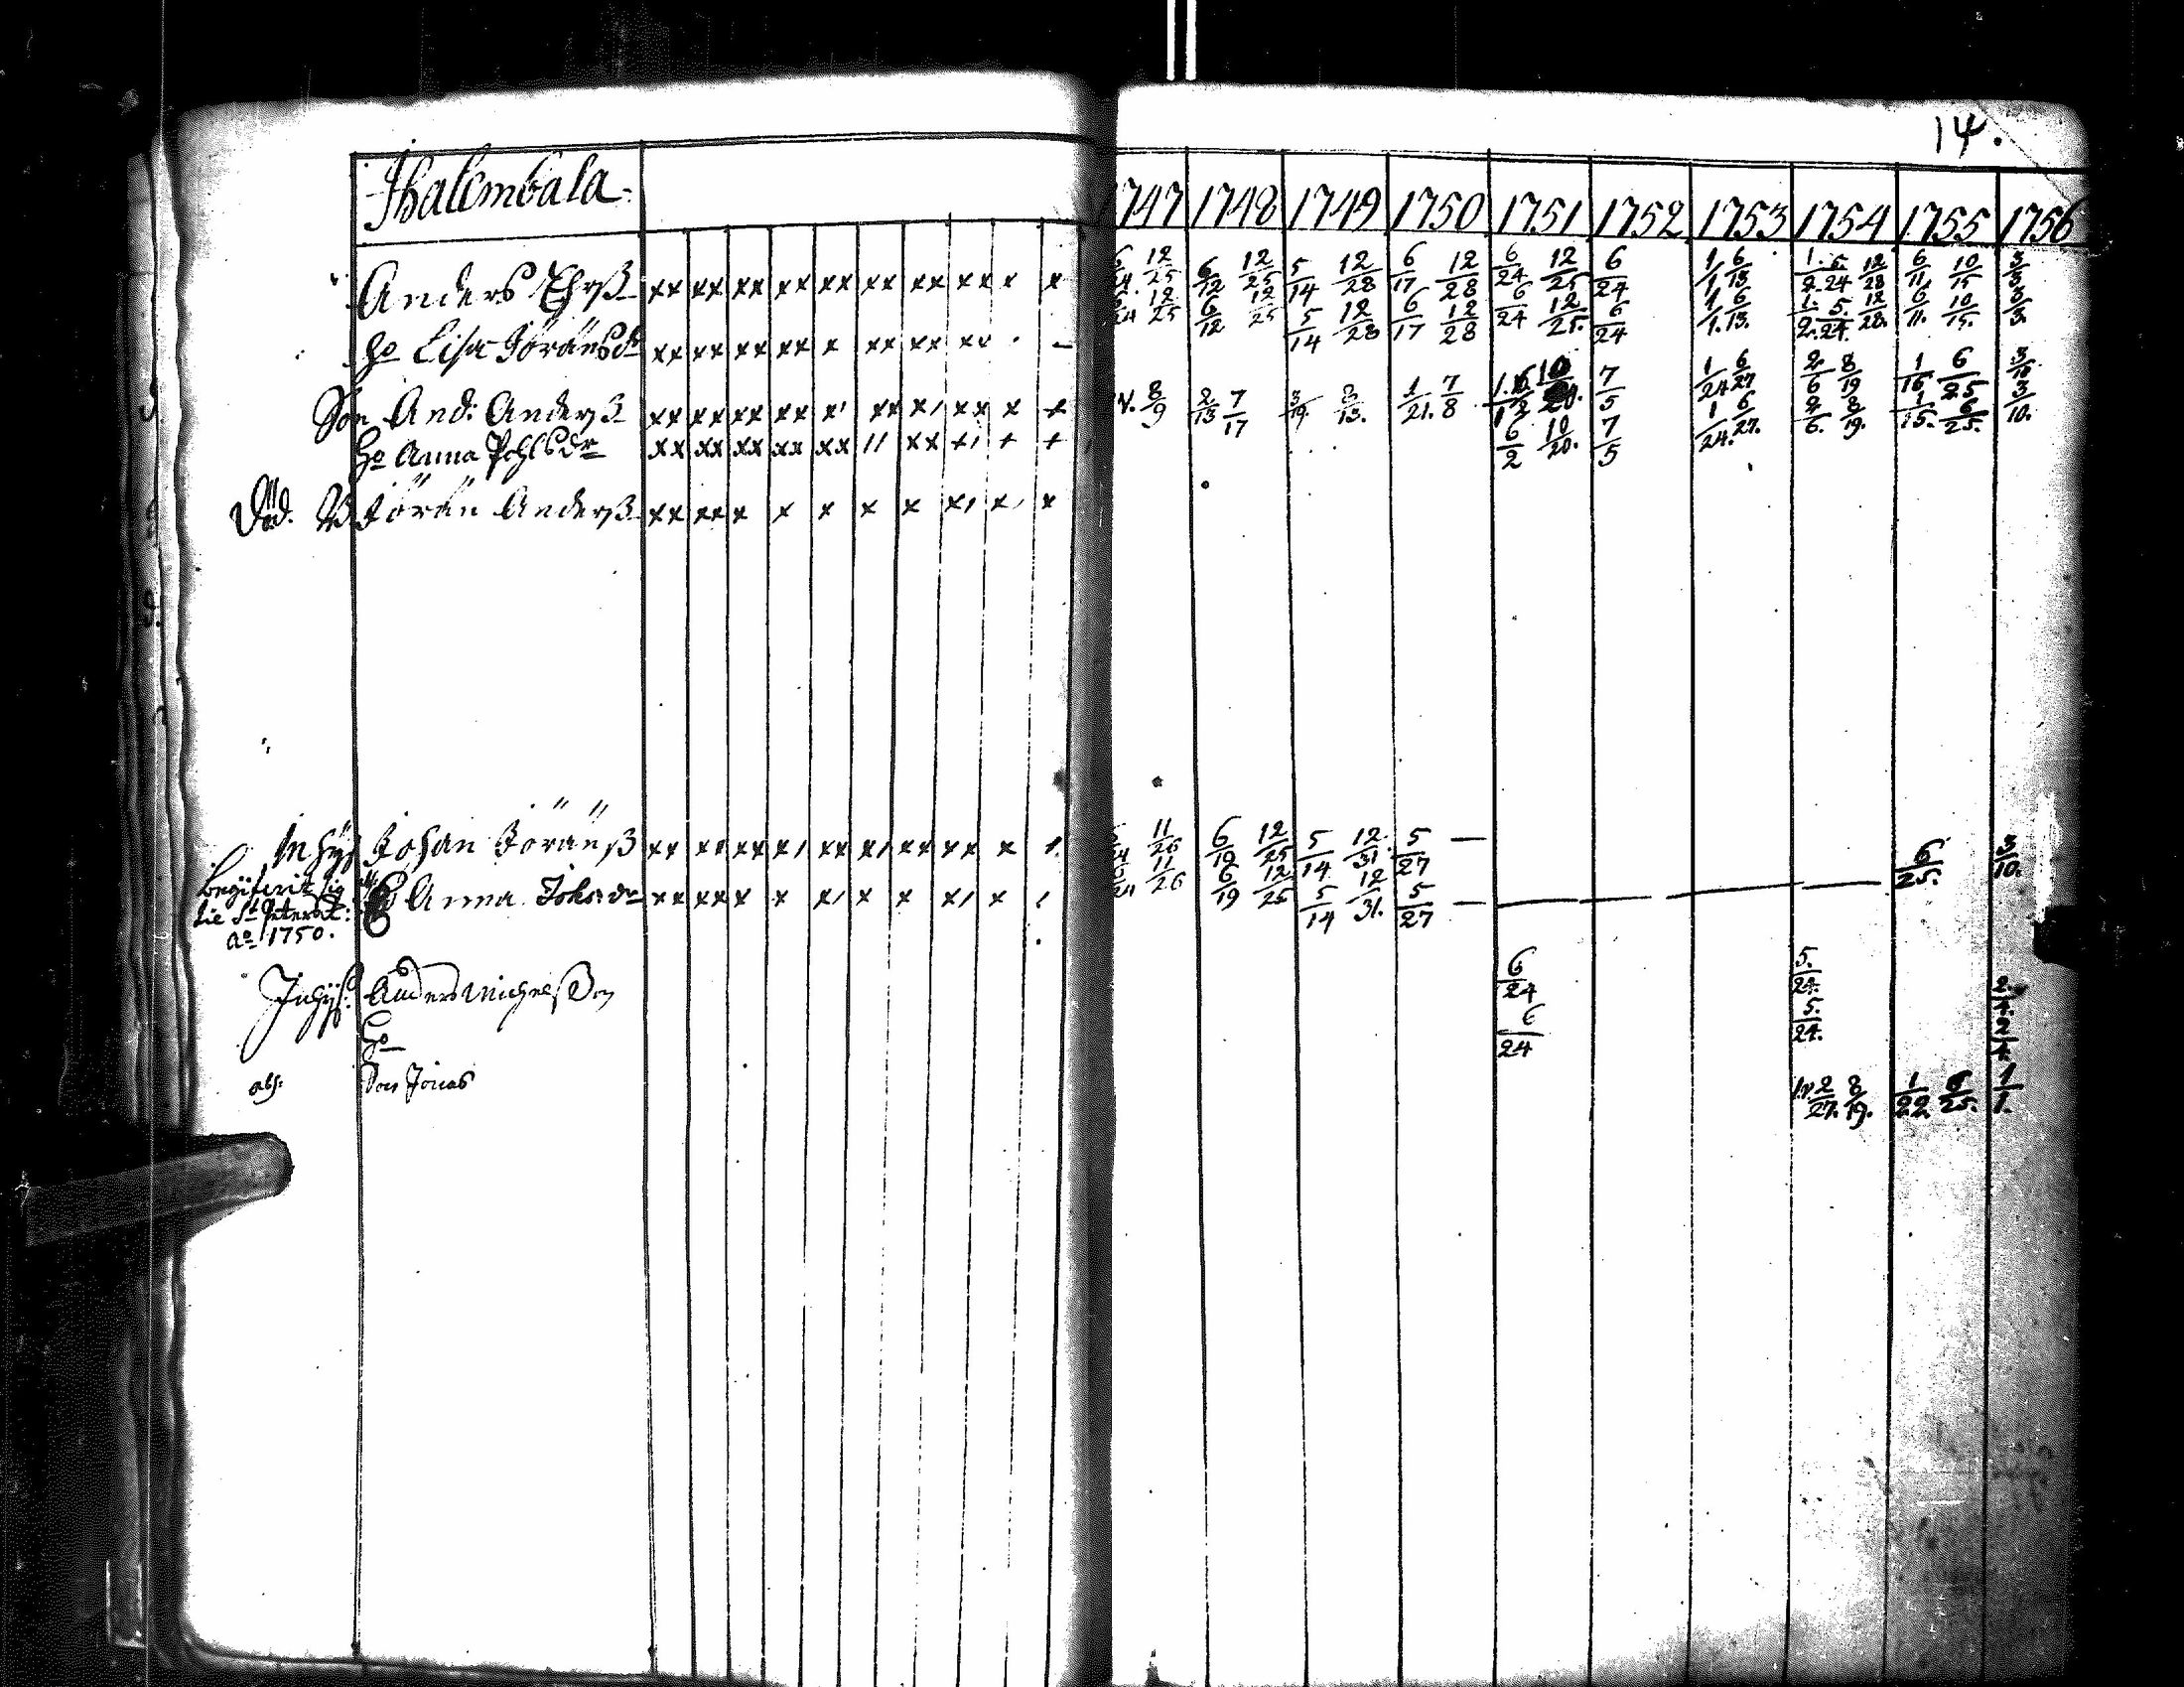 14.
Ihalembala
1747 1748 1749 1750 1751 1752 1753 1754 1755 1756
Anders Thsß xx xx xx xx xx xx xx xx x x 12/25 6/12 12/25 5/14 12/28 6/17 12/28 6/24 12/25 6/24 1/1 6/13 1/2 5/24 12/28 6/11 10/15 3/3
ho Lisa Jöransdr xx xx xx xx x xx xx xx 12/25 6/12 12/25 5/14 12/28 6/17 12/28 6/24 12/25. 6/24 1/1. 6/13. 1/2. 5/24. 12/28. 6/11. 10/15. 3/3.
Son And: Andersß xx xx xx xx x, xx x, xx x x 8/9 2/13 7/17 3/19. 3/13. 1/21. 7/8 7/5 1/24 6/27 2/6 8/19 1/16 6/25 3/10
ho Anna Pohlsdr xx xx xx xx xx // xx x, + + 6/2 10/20. 7/5 1/24. 6/27. 2/6. 8/19. 1/15. 6/25. 3/10.
Död. Jörän Andersß xx xx x x x x x x, x, x
Inhys Johan Jöränß xx xx xx x, xx x, xx xx x 11/26 6/19 12/25 5/14 12/31. 5/27 — 6/25. 3/10.
begifvit sig
Anna Johsdr xx xx x x x, x x x, x , 11/26 6/19 12/25 5/14 12/31. 5/27 —
til St Petersb:
ao 1750.
Inhys: Anders Michelsson 6/24 5./24. 2/4.
ho 6/24 5./24. 2/4
abs: Son Jonas 2/27. 8/19. 1/22 6/25. 1/1.